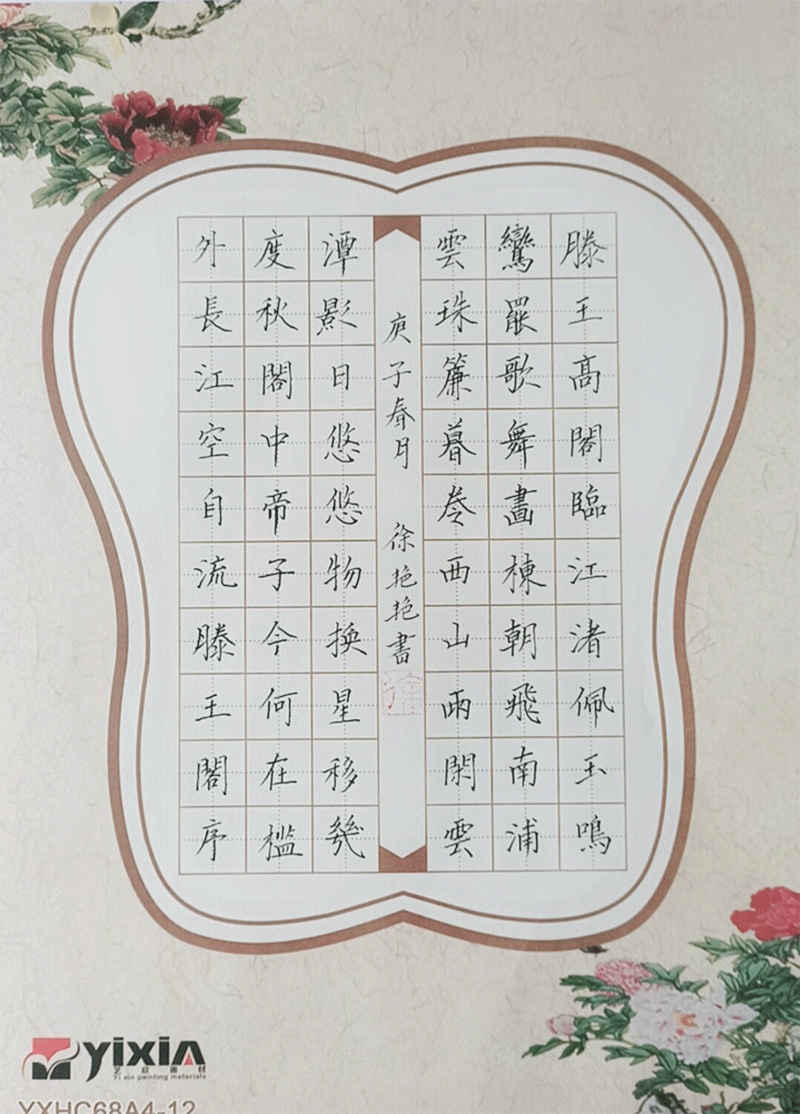 滕王高閣臨江渚佩玉鳴
鸞罷歌舞畫棟朝飛南浦
雲珠簾暮卷西山雨閑雲
潭影日悠悠物換星移幾
度秋閣中帝子今何在檻
外長江空自流滕王閣序
庚子春月 徐艳艳書
徐
yixin
艺欣画材
Yi xin painting materials
YXHC68A4-12